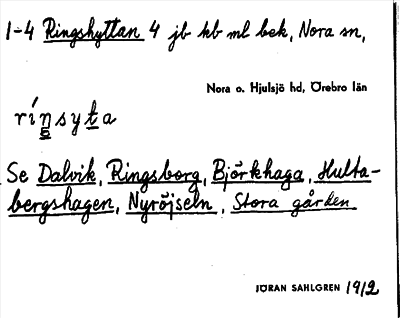 1-4 Ringshyttan 4 jb kb ml bek, Nora sn,
Nora o. Hjulsjö hd, Örebro län
rínsyta
Se Dalvik, Ringsborg, Björkhaga, Hulta-
bergshagen, Nyröjseln, Stora gården
JÖRAN SAHLGREN 1912